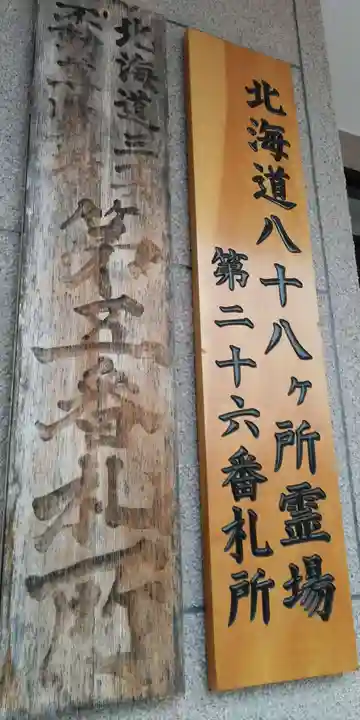 北海道八十八ヶ所霊場
第二十六番札所
北海道三
第五番札所